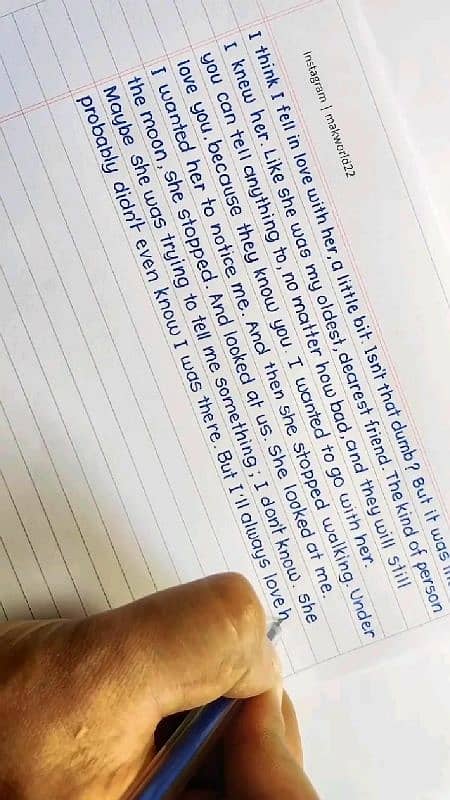 Instagram | makworld22
I think I fell in love with her, a little bit. Isn't that dumb? But it was
I knew her. Like she was my oldest, dearest friend. The kind of person
you can tell anything to, no matter how bad, and they will still
love you, because they know you. I wanted to go with her.
I wanted her to notice me. And then she stopped walking. Under
the moon, she stopped. And looked at us. She looked at me.
Maybe she was trying to tell me something; I dont know. She
probably didn't even know I was there. But I'll always love